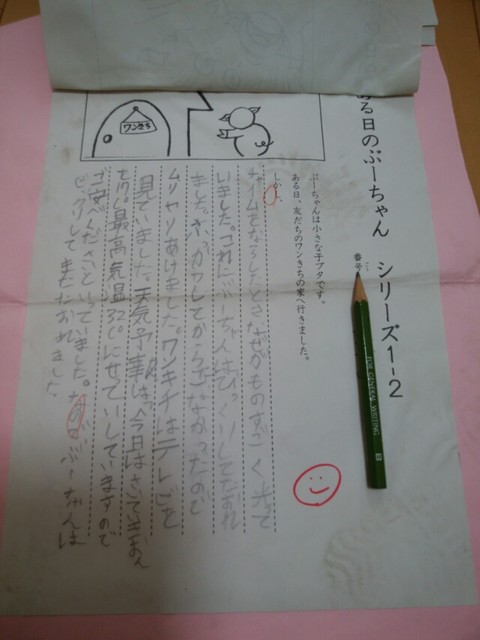 ある日のぷーちゃん シリーズ1-2
番号
ぷーちゃんは小さな子ブタです。
ある日、友だちのワンきちの家へ行きました。
ワンきち
チャイムをならしたとき なぜかものすごく
いました。これにぷーちゃんはびっくりしてたおれ
ました。カギがかかって なかったので
ムリヤリあけました。ワンキチはテレビを
見ていました。天気予報は、今日はさいてい
最高気温32℃にせっていしていますので
ご安心くださいといっていました。なのでぷーちゃんは
ビックリしてまたたおれました
FOR GENERAL WRITING